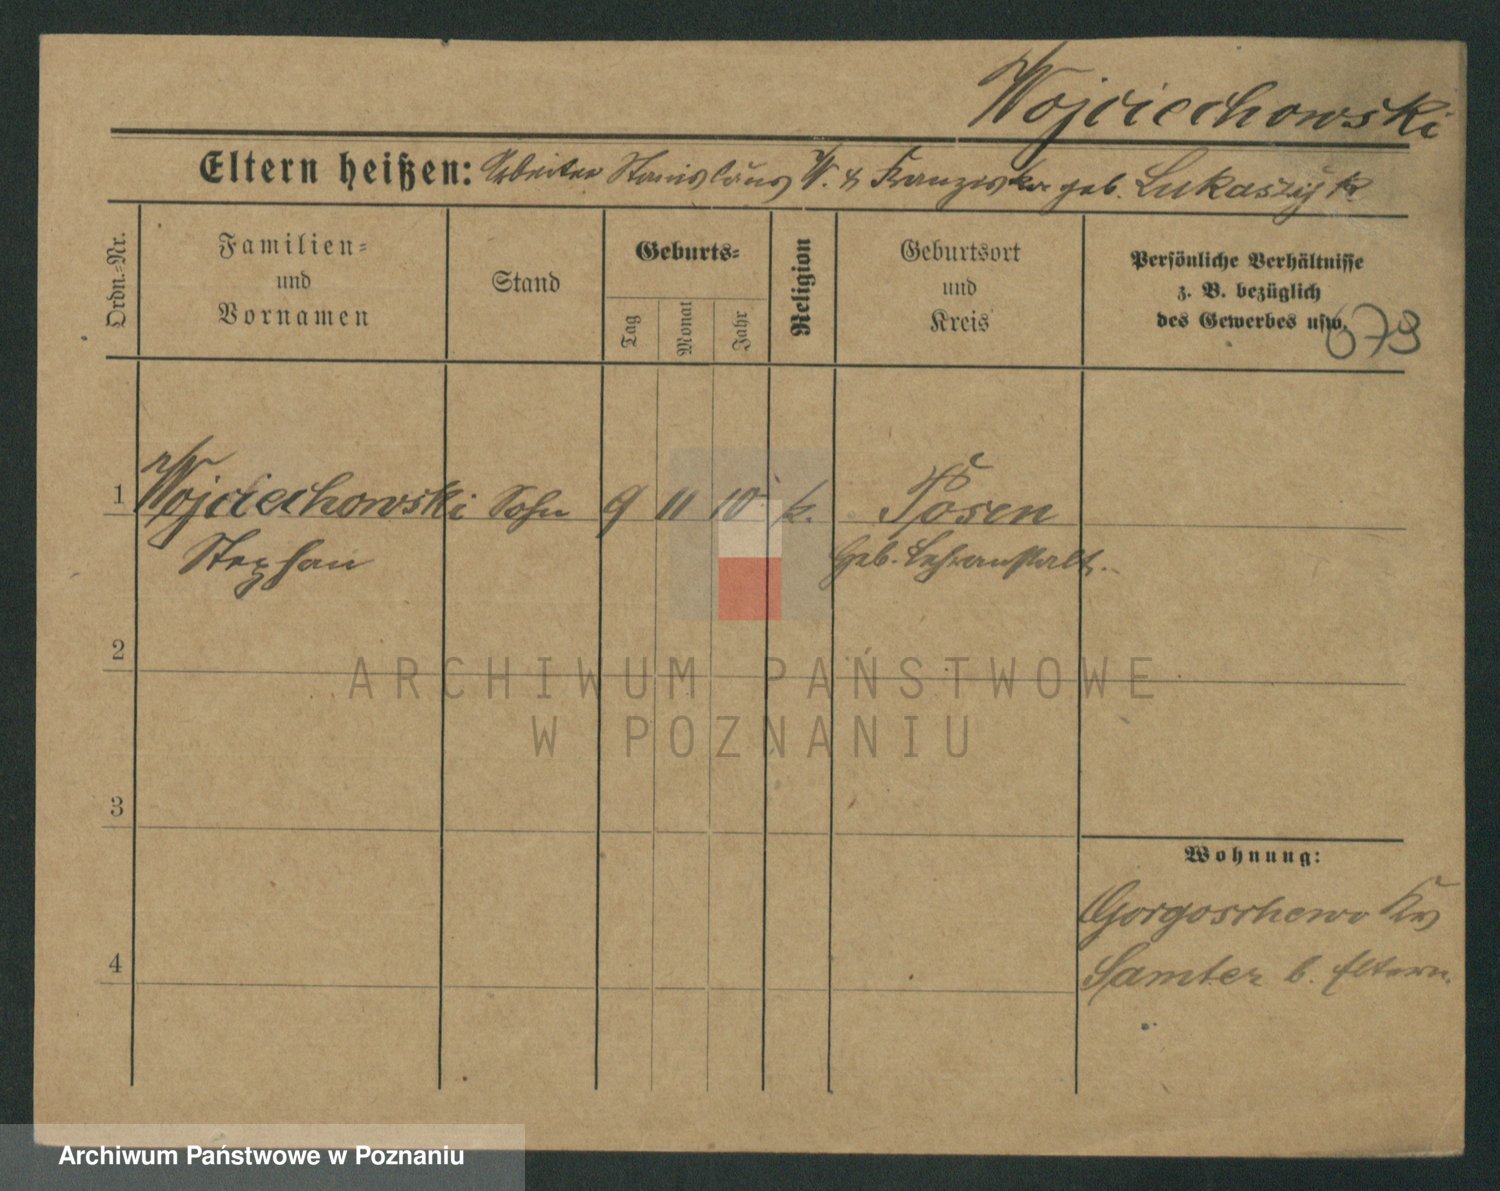 Wojciechowski
Eltern heißen: Arbeiter Stanislaus W. & Franziska geb. Lukaszyk
Ordn.=Nr.
Familien=
und
Vornamen
Stand
Geburts=
Tag
Monat
Jahr
Religion
Geburtsort
und
Kreis
Persönliche Verhältnisse
z. B. bezüglich
des Gewerbes usw.
679
1 Wojciechowski Sohn 9 11 10 k. Posen
Stephan Heb. Lehranstalt.
2
ARCHIWUM PAŃSTWOWE
W POZNANIU
3
Wohnung:
Gorgoschewo Krs
4 Samter b. Eltern.
Archiwum Państwowe w Poznaniu